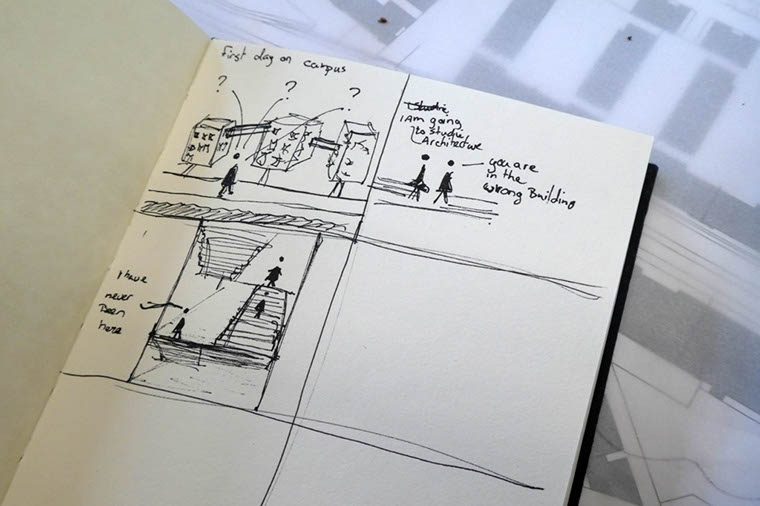 first day on campus
? ? ?
I Am going
to studie
Architecture
you are
in the
wrong Building
I have
never
Been
here